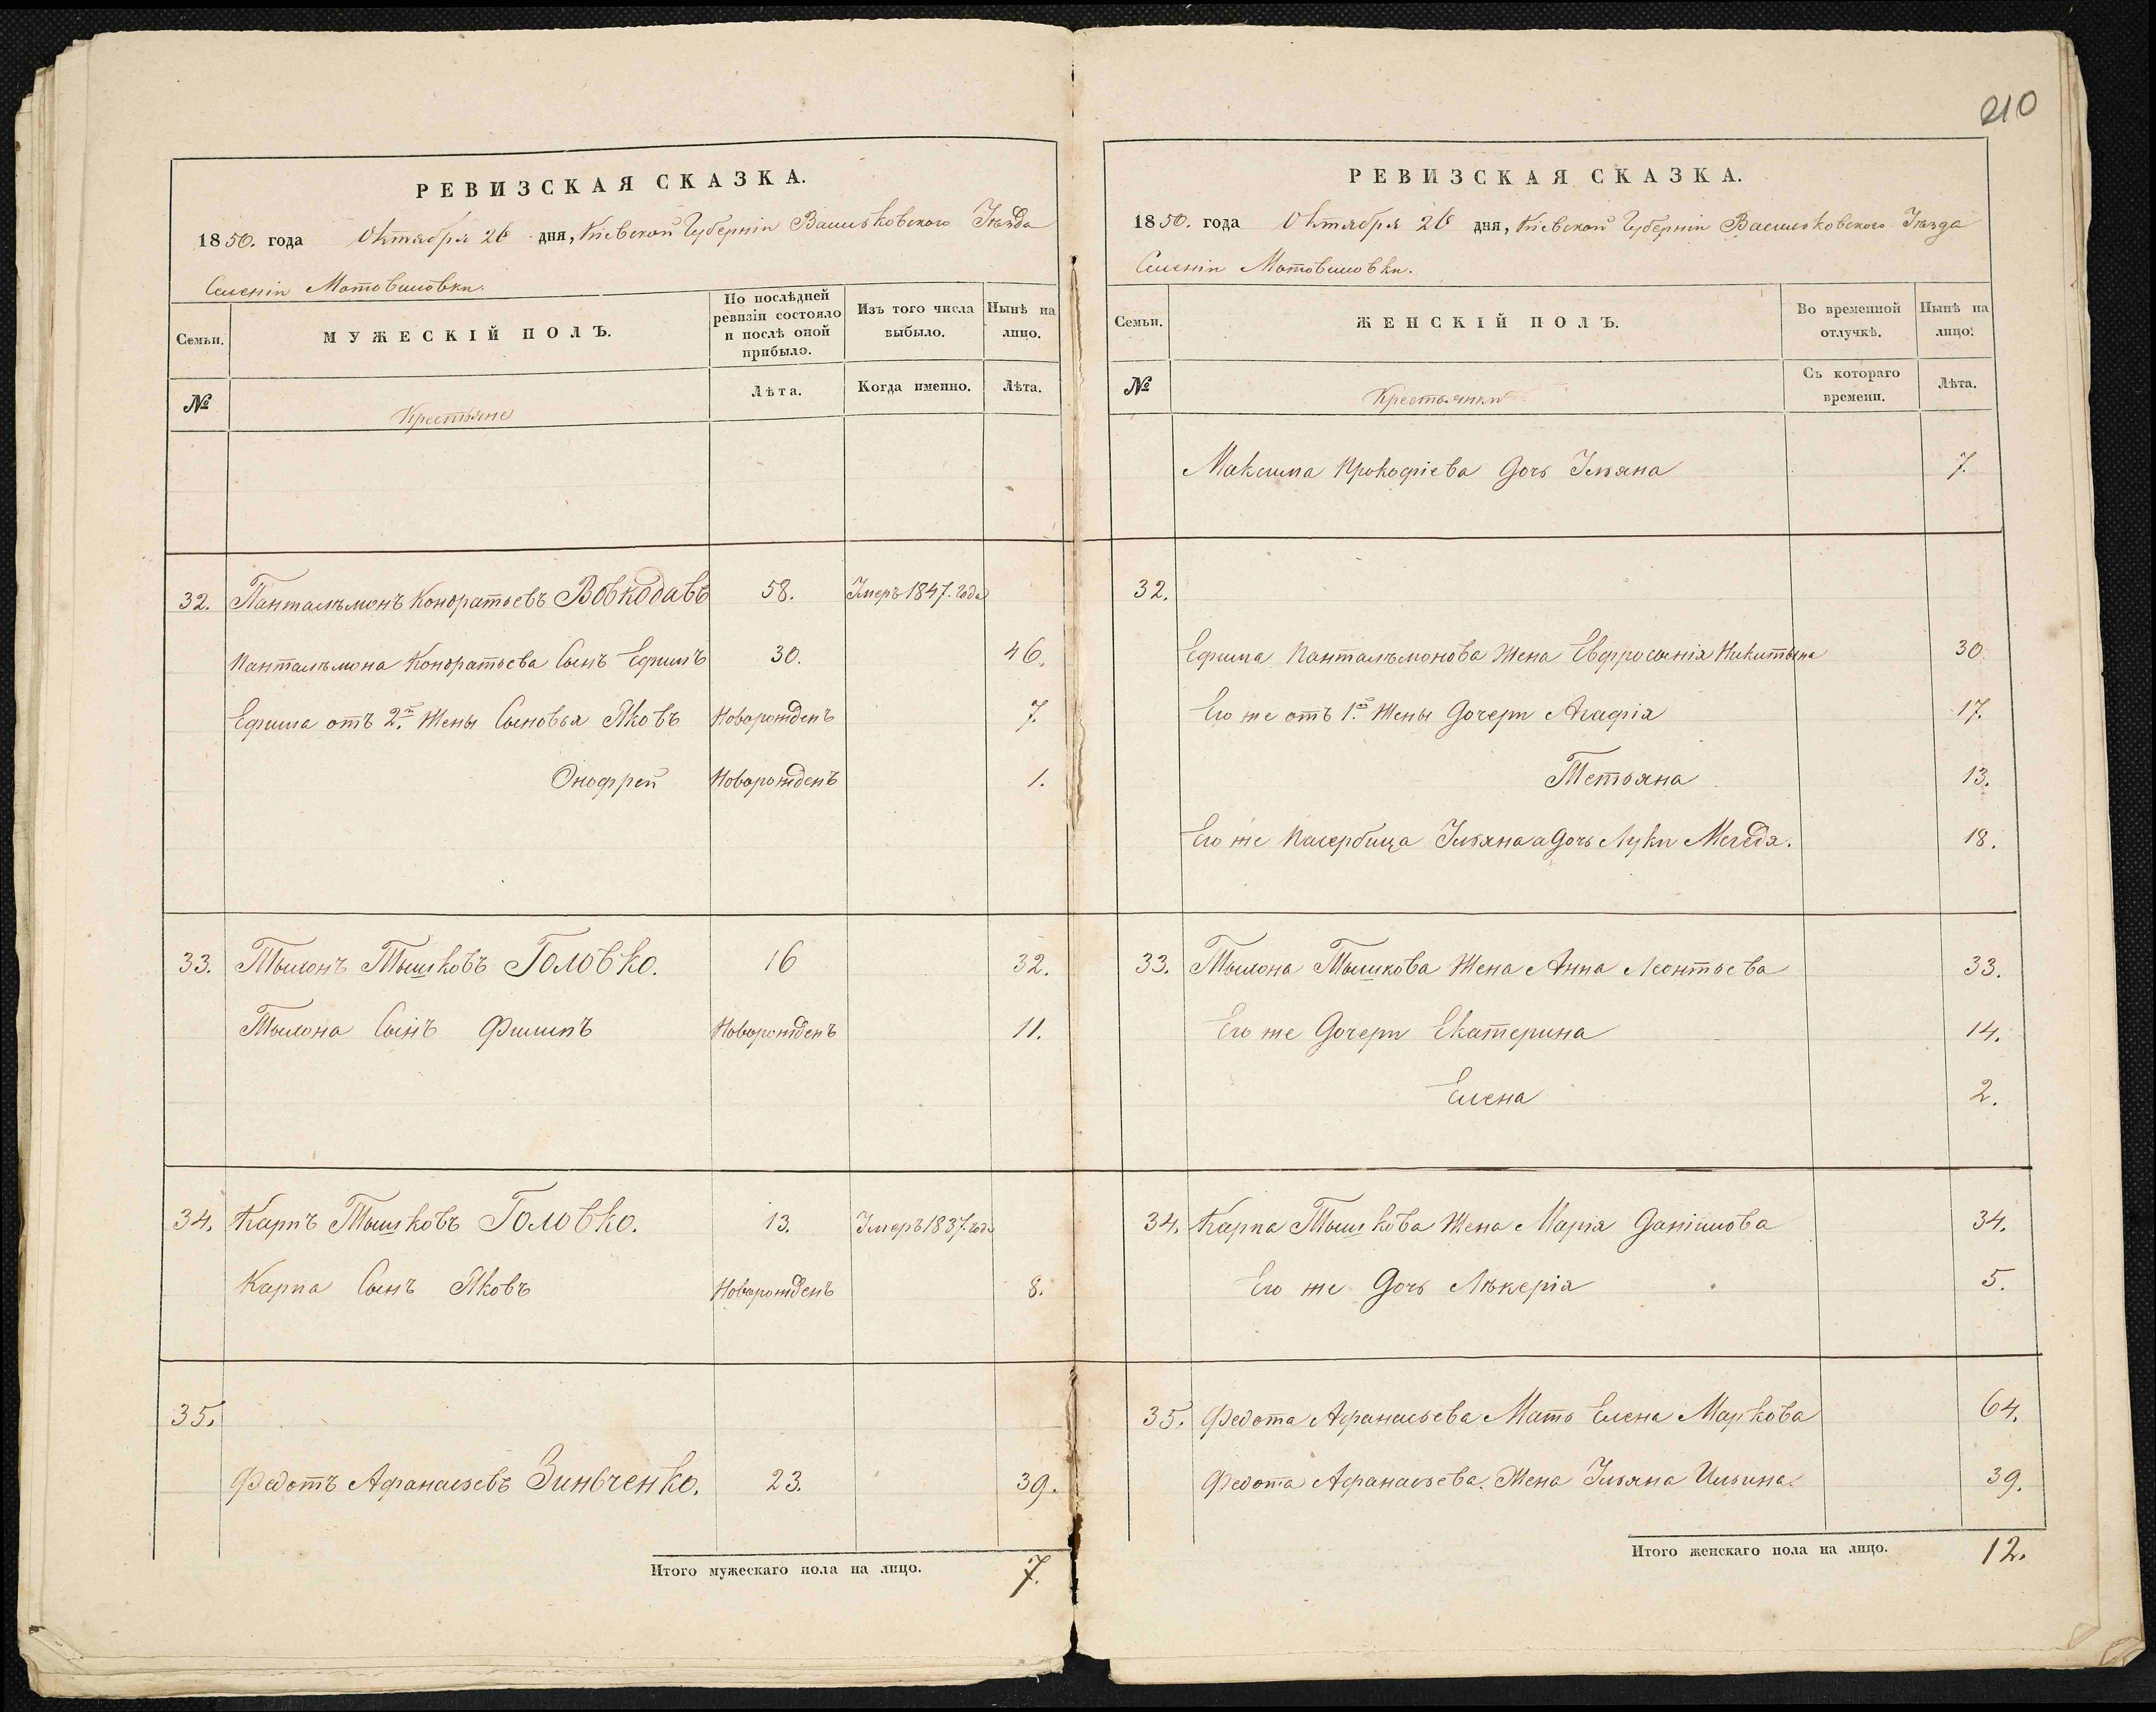 210
РЕВИЗСКАЯ СКАЗКА.
1850. года Октября 26 дня, Кіевской Губерніи Васильковского Уѣзда
Селенія Мотовиловки.
Семьи.
МУЖЕСКІЙ ПОЛЪ.
По послѣдней ревизіи состояло и послѣ оной прибыло.
Изъ того числа выбыло.
Нынѣ на лицо.
№
Крестьяне
Лѣта.
Когда именно.
Лѣта.
32. Пантальмонъ Кондратьевъ Вовкодавъ 58. Умеръ 1847. года
Пантальмона Кондратьева Сынъ Ефимъ 30. 46.
Ефима отъ 2й. Жены Сыновья Яковъ Новорожденъ 7.
Онофрей Новорожденъ 1.
33. Тымонъ Тышковъ Головко. 16 32.
Тымона Сынъ Филипъ Новорожденъ 11.
34. Карпъ Тышковъ Головко. 13. Умеръ 1837. года
Карпа Сынъ Яковъ Новорожденъ 8.
35.
Федотъ Афанасьевъ Зинвченко. 23. 39.
Итого мужескаго пола на лицо. 7.
РЕВИЗСКАЯ СКАЗКА.
1850. года Октября 26 дня, Кіевской Губерніи Васильковского Уѣзда
Селенія Мотовиловки.
Семьи.
ЖЕНСКІЙ ПОЛЪ.
Во временной отлучкѣ.
Нынѣ на лицо.
№
Крестьянки
Съ котораго времени.
Лѣта.
Максима Прокофіева Дочь Ульяна 7.
32.
Ефима Пантальмонова Жена Евфросынія Никитына 30
Его же отъ 1й. Жены Дочери Агафія 17.
Тетьяна 13.
Его же Пасербица Ульяна а Дочь Луки Мегедя. 18.
33. Тымона Тышкова Жена Анна Леонтьева 33.
Его же Дочери Екатерина 14.
Елена 2.
34. Карпа Тышкова Жена Марія Даніилова 34.
Его же Дочь Лукерія 5.
35. Федота Афанасьева Мать Елена Маркова 64.
Федота Афанасьева. Жена Ульяна Ильина. 39.
Итого женскаго пола на лицо. 12.